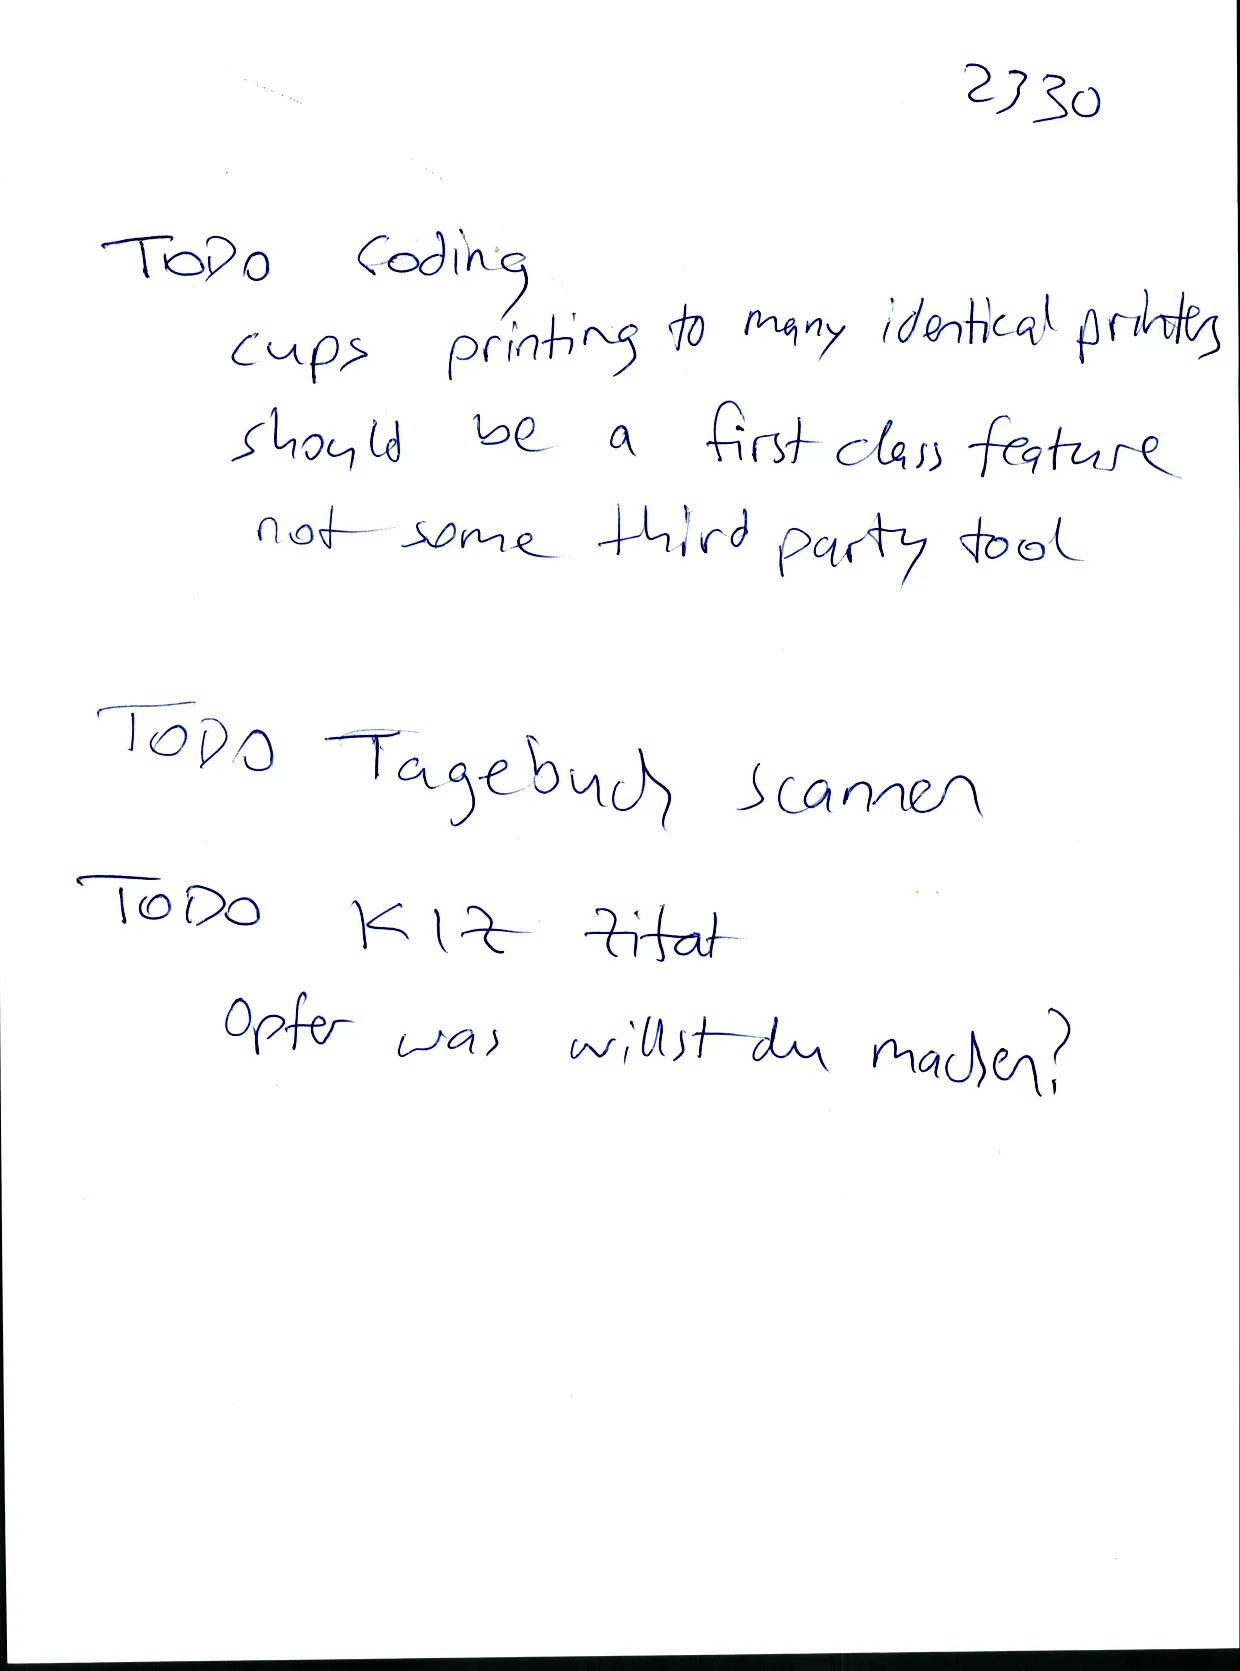 2330
TODO Coding
cups printing to many identical printers
should be a first class feature
not some third party tool
TODO Tagebuch scannen
TODO KIZ Zitat
Opfer was willst du machen?